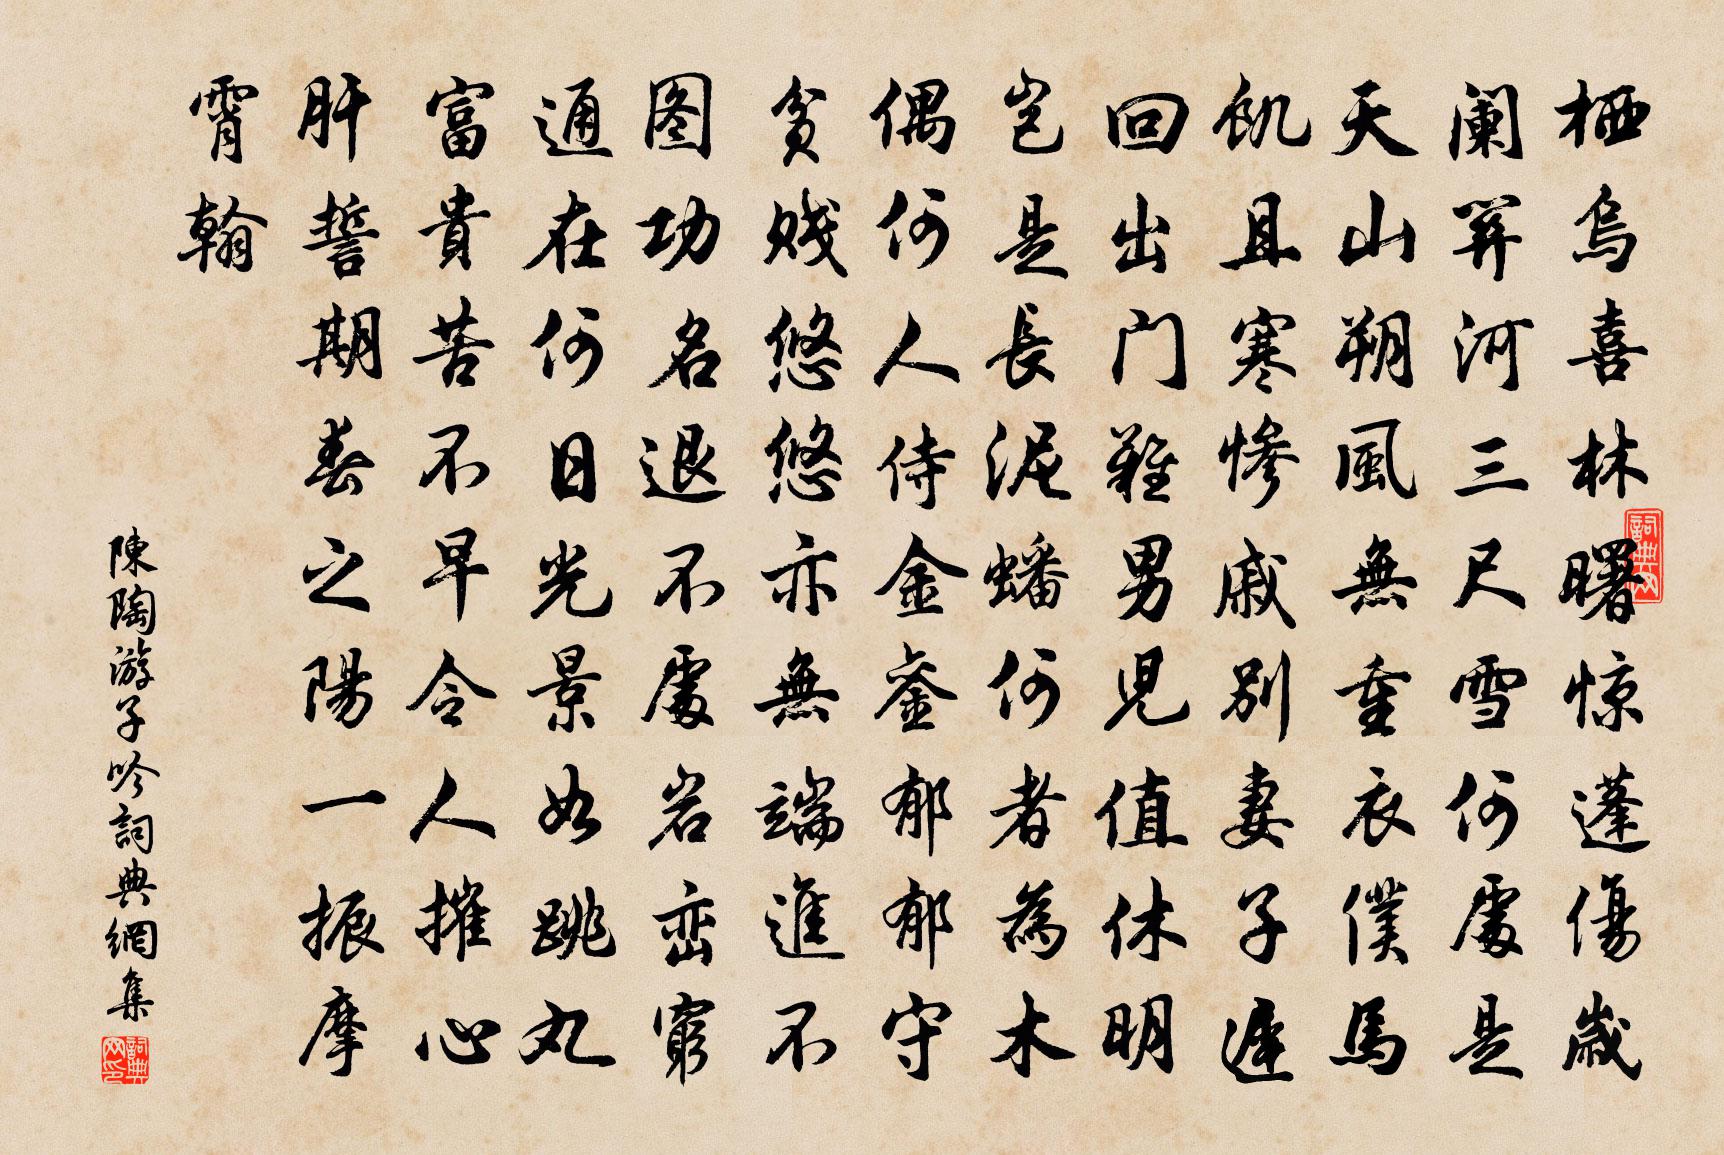 栖烏喜林曙惊蓬傷歲
阑關河三尺雪何處是
天山朔風無重衣僕馬
飢且寒惨戚别妻子遲
回出门難男児值休明
岂是長泥蟠何者為木
偶何人侍金銮郁郁守
贫贱悠悠亦無端進不
图功名退不處岩峦窮
通在何日光景如跳丸
富貴苦不早令人摧心
肝誓期春之陽一振摩
霄翰
陳陶游子吟詞典網集
詞典网
詞典网印